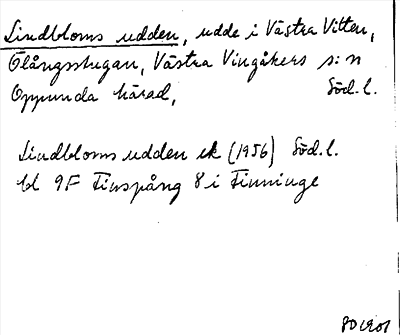 Lindbloms udden, udde i Västra Vitten,
Ölångsstugan, Västra Vingåkers s:n
Oppunda härad, Söd.l.
Lindbloms udden ek (1956) Söd.l.
bl 9F Finspång 8 i Finninge